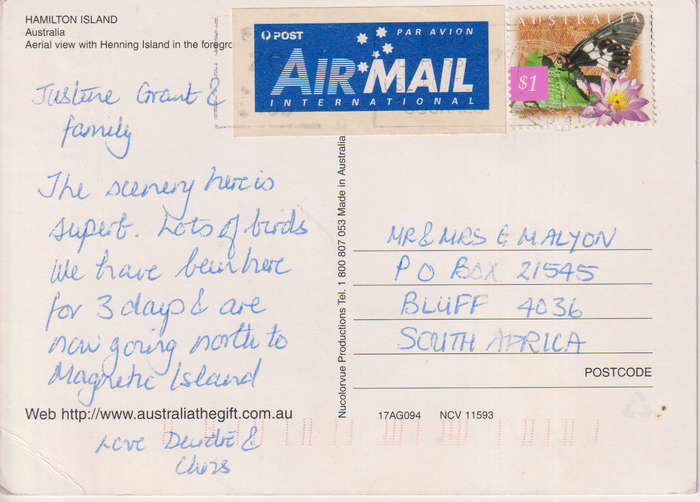 HAMILTON ISLAND
Australia
Aerial view with Henning Island in the foregro
POST
PAR AVION
AIR MAIL
INTERNATIONAL
AUSTRALIA
$1
Justine Grant &
family
The scenery here is
superb. Lots of birds
We have been here
for 3 days & are
now going north to
Magnetic Island
Love Deirdre &
Chris
Web http://www.australiathegift.com.au
Nucolorvue Productions Tel. 1 800 807 053 Made in Australia
MR & MRS G MALYON
P O BOX 21545
BLUFF 4036
SOUTH AFRICA
POSTCODE
17AG094 NCV 11593